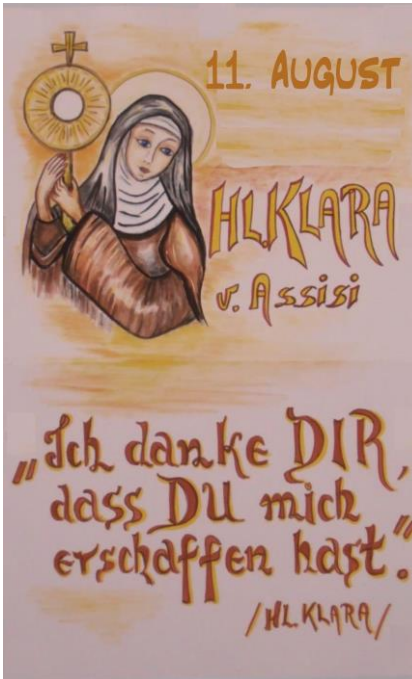 11. AUGUST
HL.KLARA
v. Assisi
„Ich danke DIR,
dass DU mich
erschaffen hast."
/HL. KLARA/